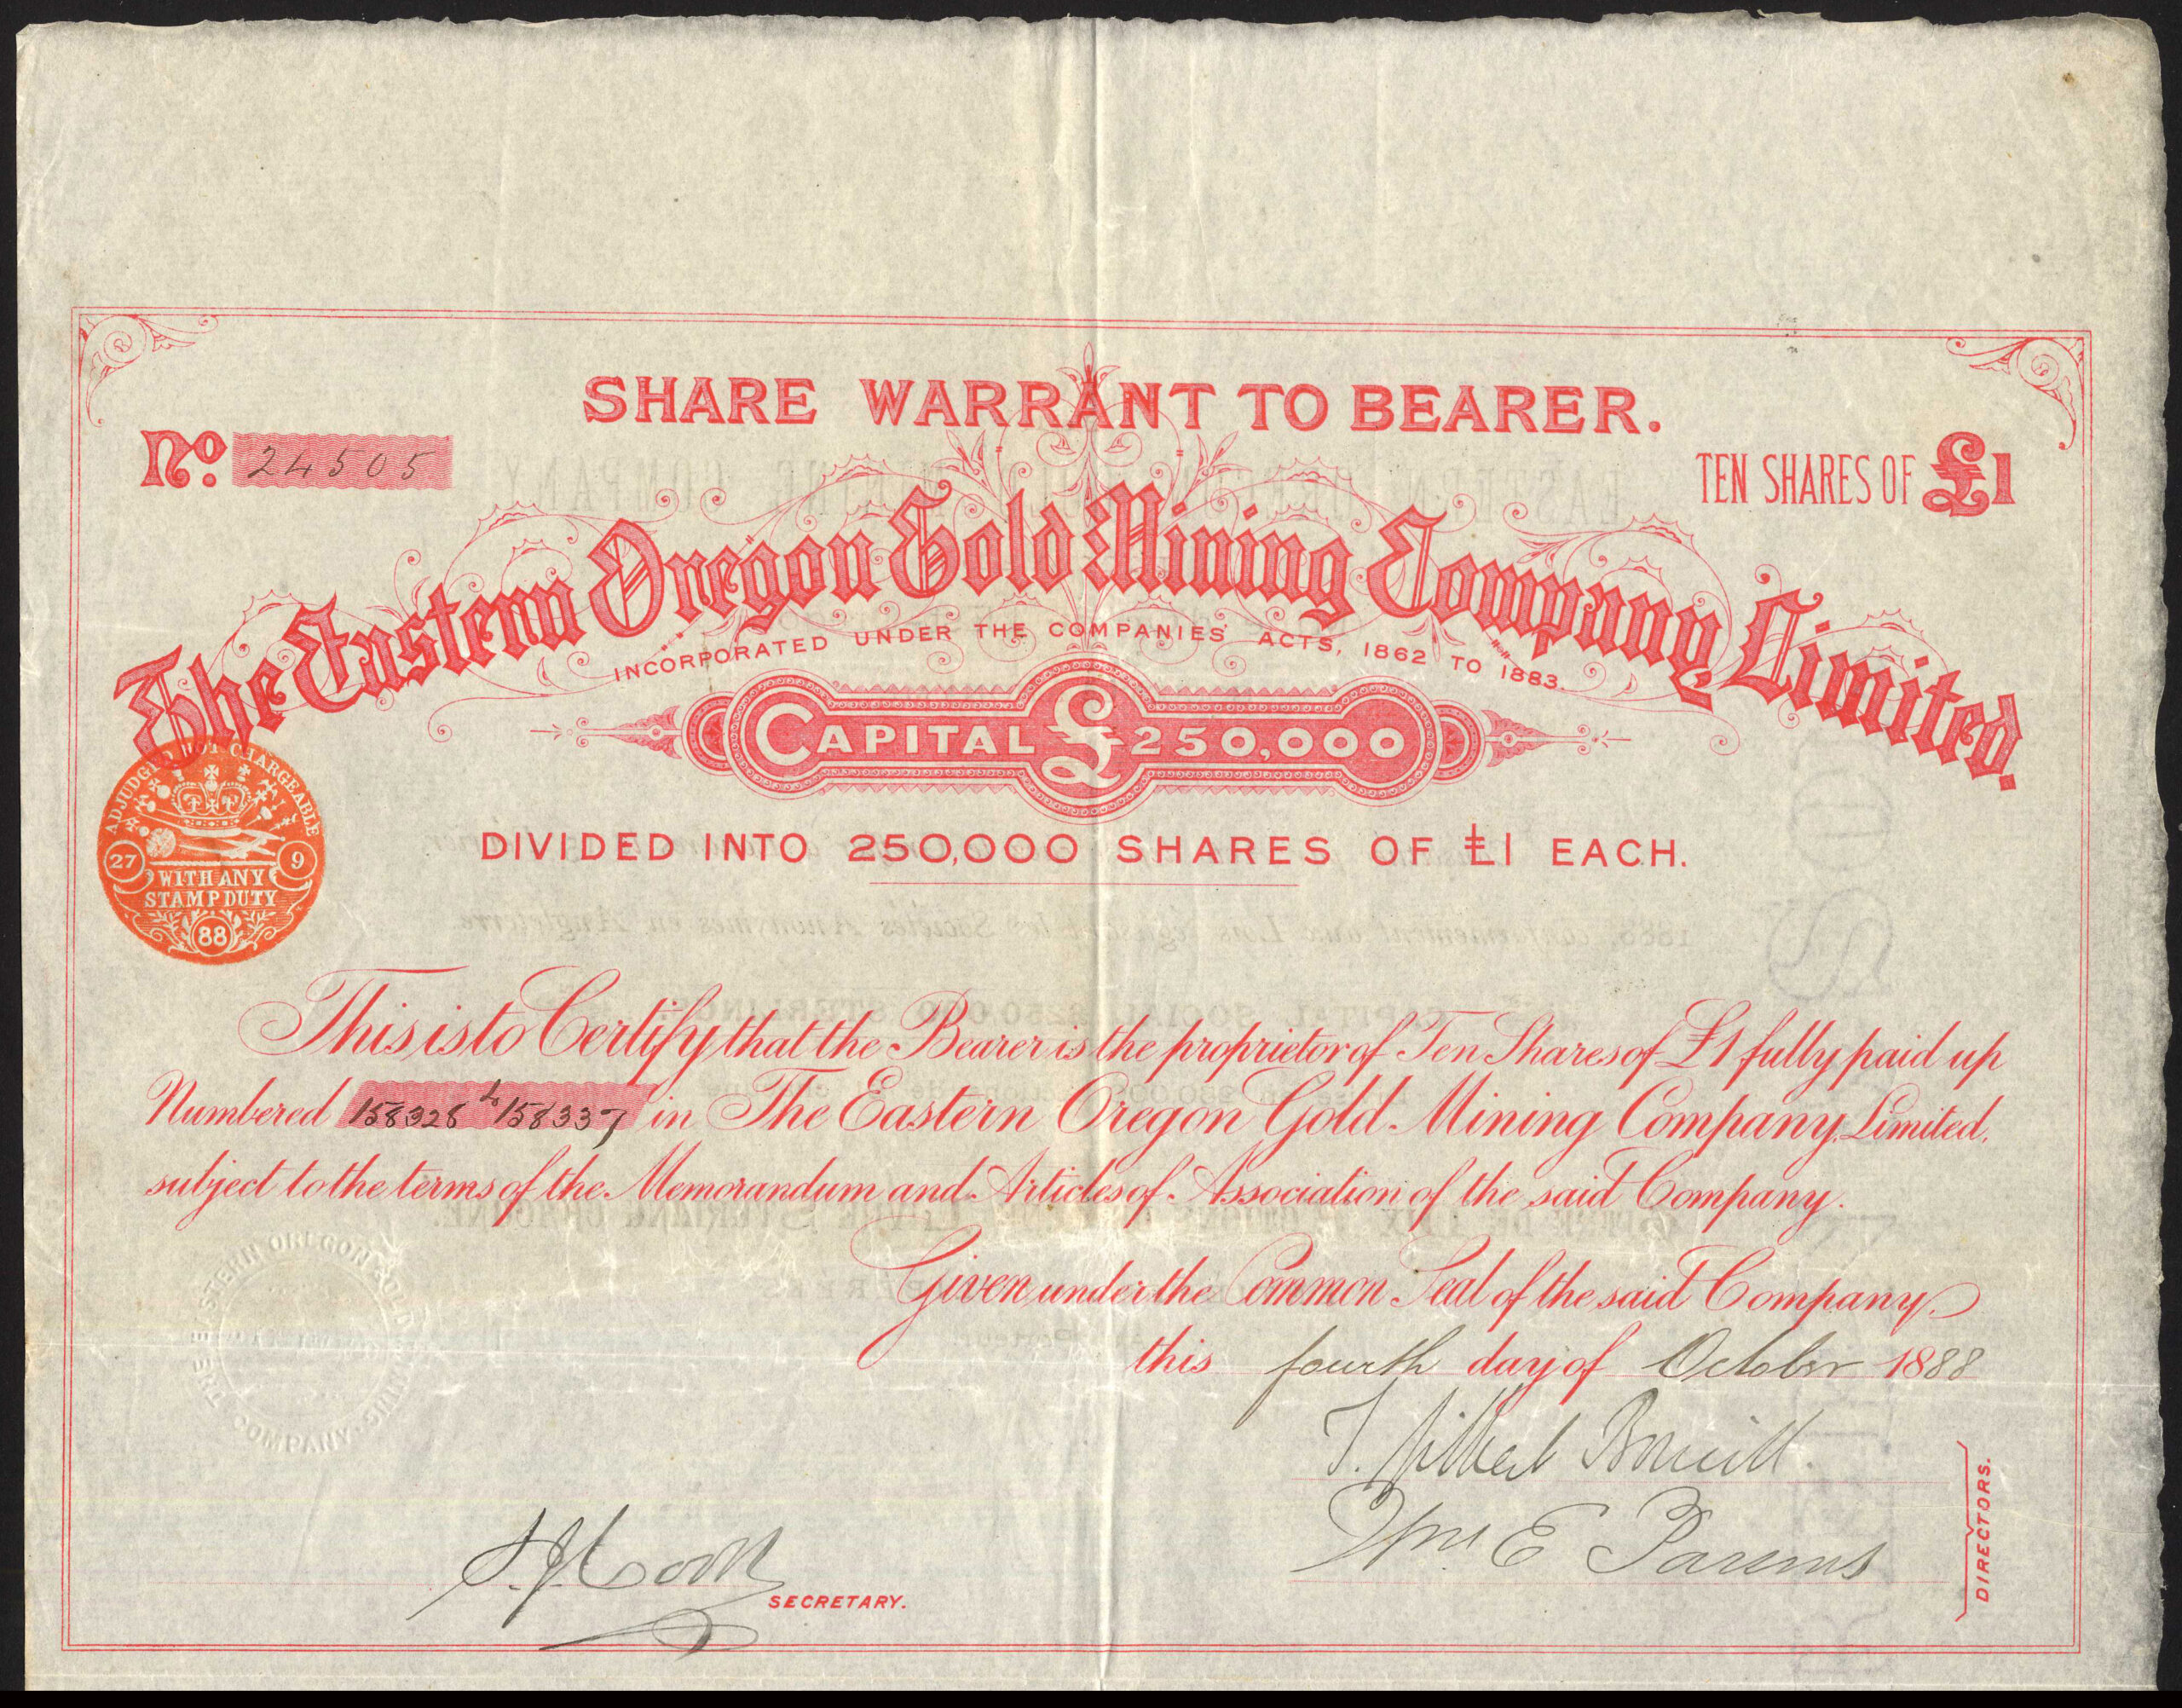 SHARE WARRANT TO BEARER.
No. 24505
TEN SHARES OF £1
The Eastern Oregon Gold Mining Company, Limited.
INCORPORATED UNDER THE COMPANIES ACTS, 1862 TO 1883.
CAPITAL £250,000
DIVIDED INTO 250,000 SHARES OF £1 EACH.
ADJUDGED NOT CHARGEABLE
27 9
WITH ANY
STAMP DUTY
88
This is to Certify that the Bearer is the proprietor of Ten Shares of £1 fully paid up
Numbered 158328 to 158337 in The Eastern Oregon Gold Mining Company, Limited,
subject to the terms of the Memorandum and Articles of Association of the said Company.
Given under the Common Seal of the said Company,
this fourth day of October 1888
THE EASTERN OREGON GOLD MINING COMPANY
Wm E Parsons
DIRECTORS.
SECRETARY.